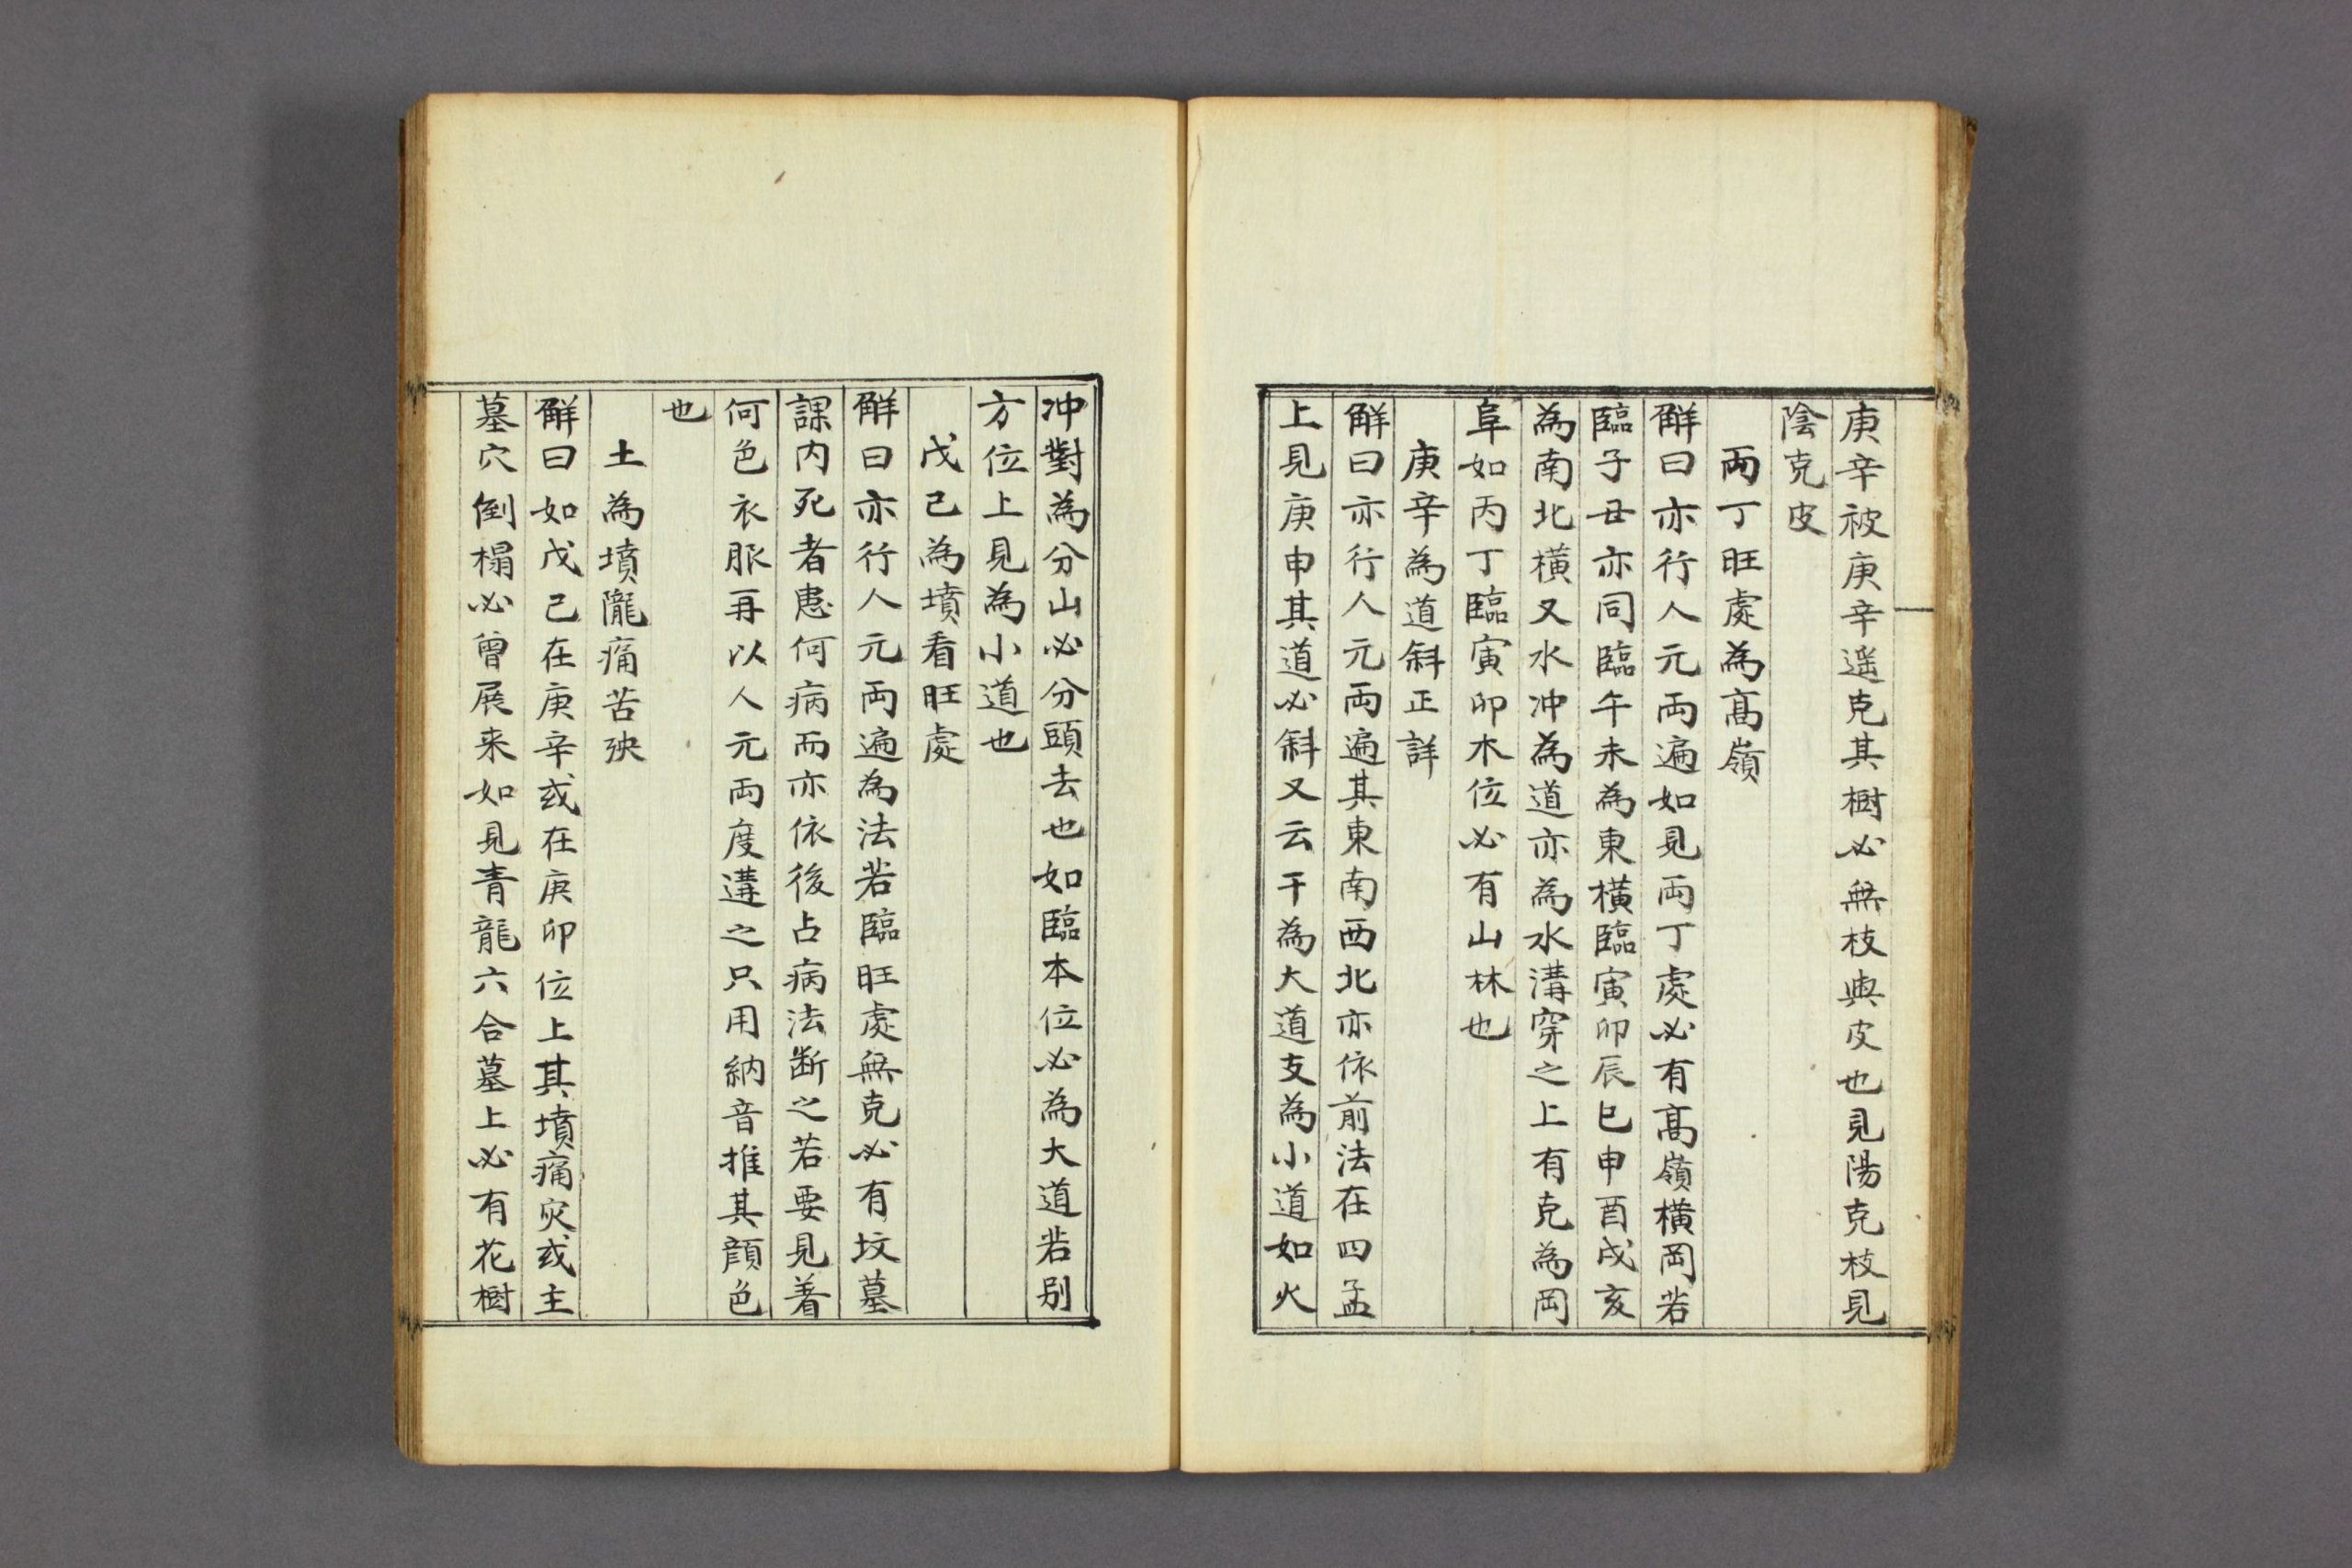 庚辛被庚辛遥克其樹必無枝與皮也見陽克枝見
陰克皮
丙丁旺處為髙嶺
觧曰亦行人元両遍如見丙丁處必有髙嶺橫岡若
臨子丑亦同臨午未為東橫臨寅卯辰巳申酉戌亥
為南北橫又水冲為道亦為水溝穿之上有克為岡
阜如丙丁臨寅卯木位必有山林也
庚辛為道斜正詳
觧曰亦行人元両遍其東南西北亦依前法在四孟
上見庚申其道必斜又云干為大道支為小道如火
冲對為分山必分頭去也如臨本位必為大道若别
方位上見為小道也
戊己為墳看旺處
觧曰亦行人元両遍為法若臨旺處無克必有坟墓
課内死者患何病而亦依後占病法断之若要見着
何色衣服再以人元両度遘之只用納音推其顔色
也
土為墳隴痛苦殃
觧曰如戊己在庚辛或在庚卯位上其墳痛灾或主
墓穴倒榻必曾展来如見青龍六合墓上必有花樹